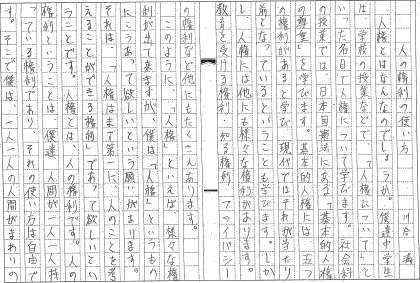 人の権利の使い方
川合
人権とはなんなのでしょうか。僕達中学生
は、学校の授業などで、「人権について」と
いった名目で人権について学びます。社会科
の授業では、日本国憲法にある「基本的人権
の尊重」を学びます。基本的人権には五つ
の権利があると学び、現代ではそれが当たり
前となっているということも学びます。しか
し、人権には他にも様々な権利があります。
教育を受ける権利・知る権利、プライバシー
の権利など他にもたくさんあります。
このように、「人権」といえば、様々な権
利が出て来ますが、僕は「人権」というもの
にこうあって欲しいという願いがあります。
それは、「人権はまず第一に、人のことを考
えることができる権利」であって欲しいとい
うことです。人権とは、人の権利です。人の
権利ということは、僕達人間が一人一人持
っている権利であり、それの使い方は自由で
す。そこで僕は、一人一人の人間がまわりの